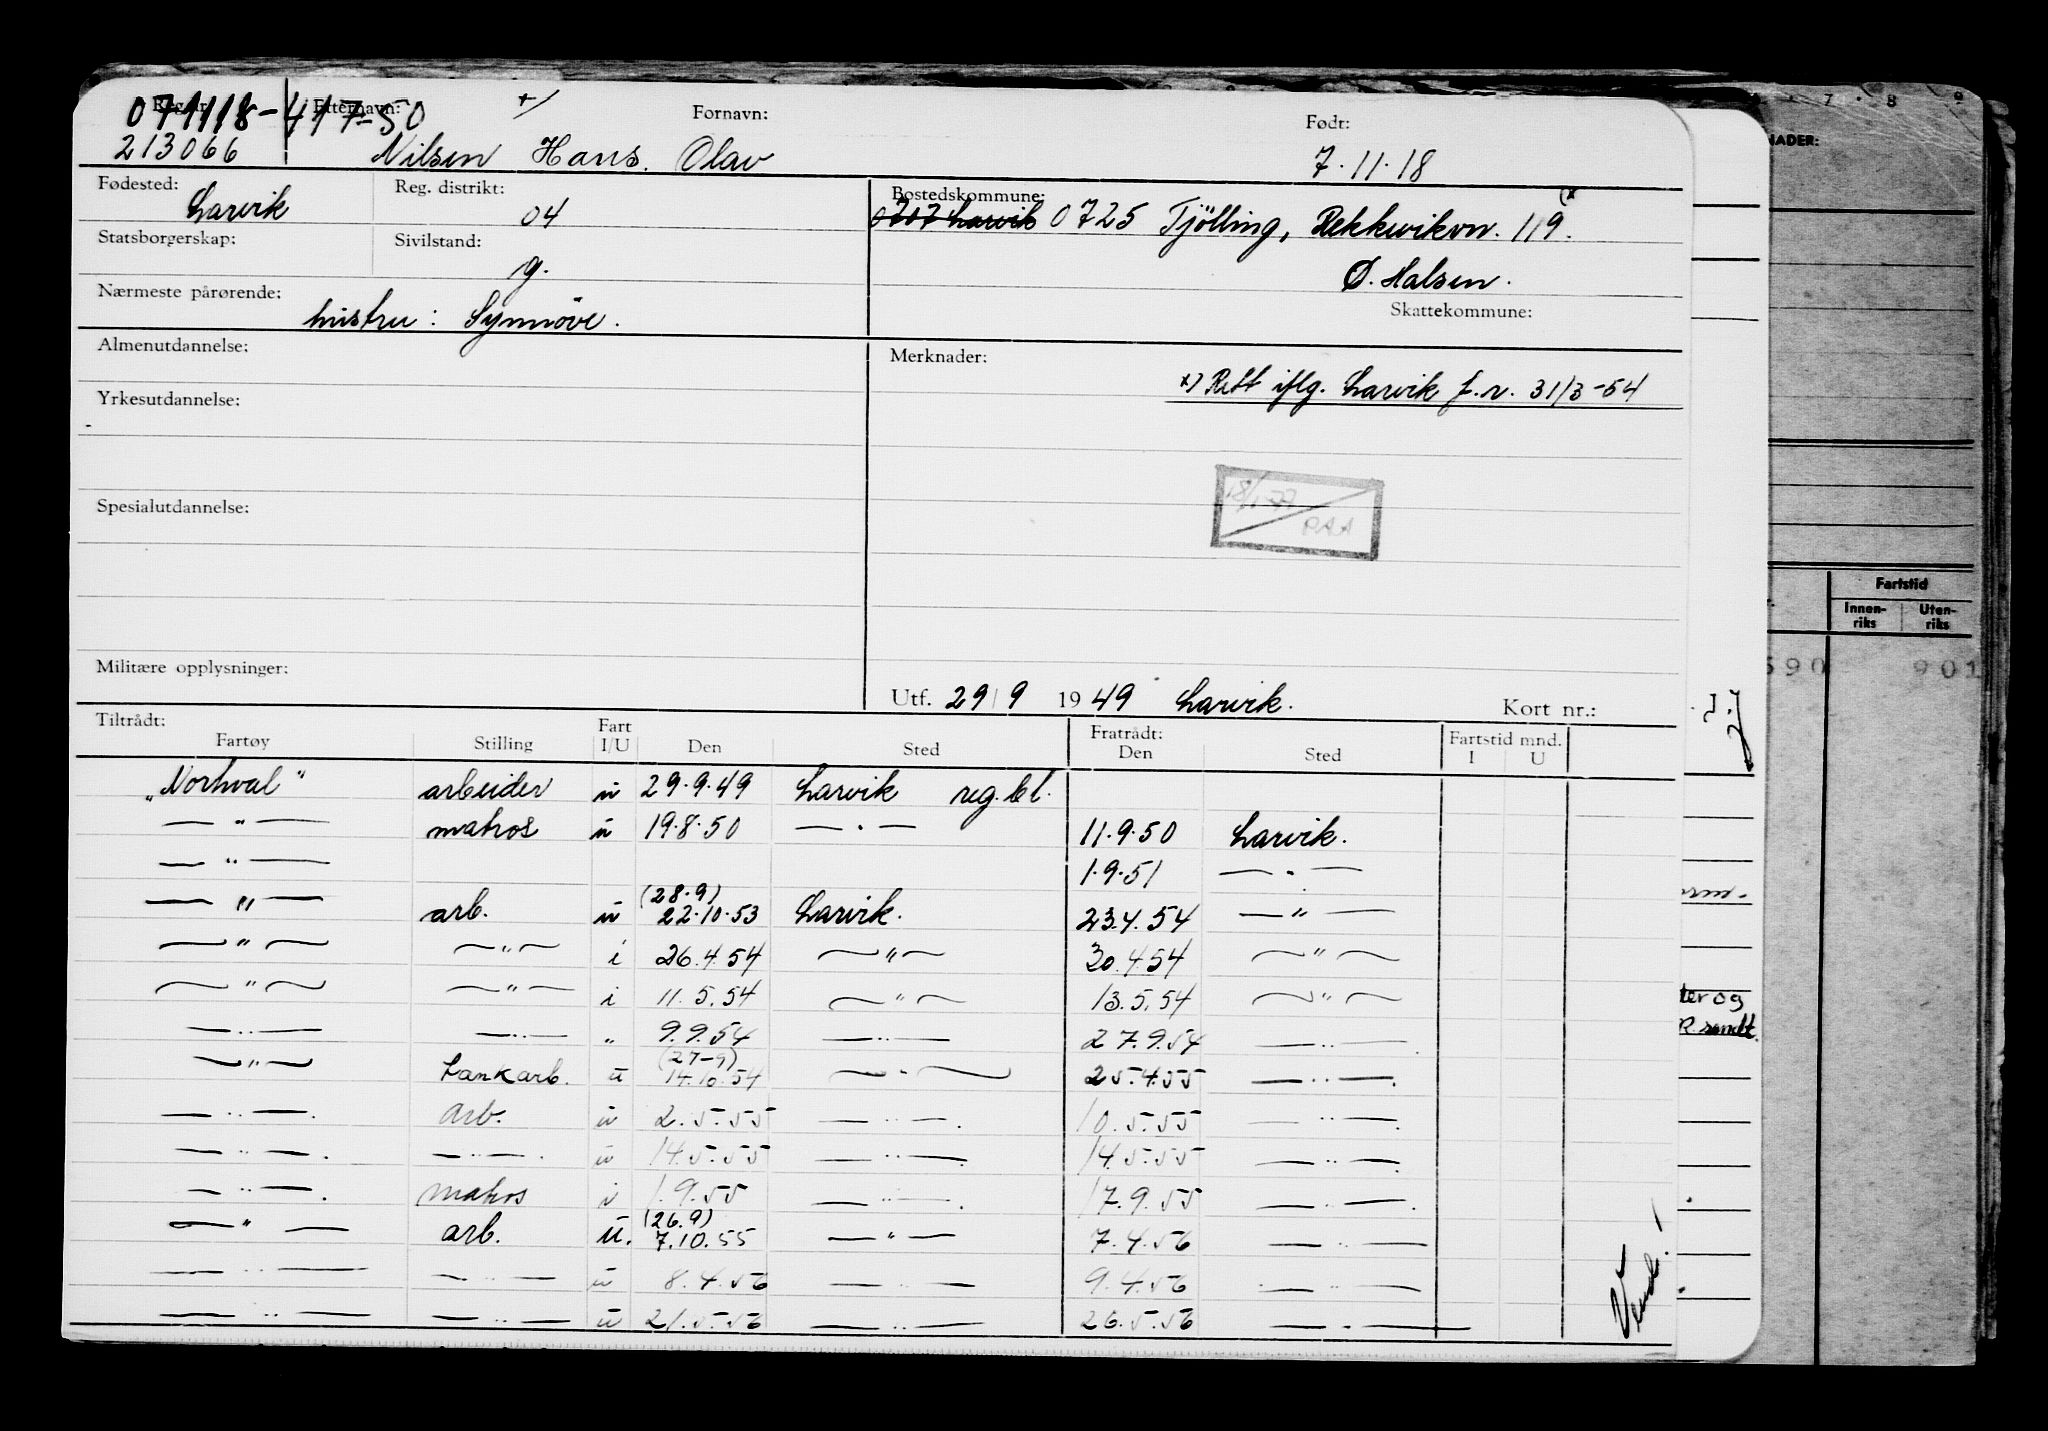 071118-417-50
Reg.nr. Etternavn: +/ Fornavn: Født:
213066 Nilsen Hans. Olav 7.11.18
Fødested: Larvik Reg. distrikt: 04 Bostedskommune: 0707 Larvik 0725 Tjölling, Rekkevikvn. 119. x)
Statsborgerskap: Sivilstand: g. Ø. Halsen.
Nærmeste pårørende: hustru: Synnöve. Skattekommune:
Almenutdannelse: Merknader:
x) Rett iflg. Larvik f.r. 31/3-54
Yrkesutdannelse:
18/1-77
PAA
Spesialutdannelse:
Militære opplysninger:
Utf. 29/9 1949 Larvik. Kort nr.:
Tiltrådt: Fratrådt: Fartstid mnd.
Fartøy Stilling Fart I/U Den Sted Den Sted I U
"Norhval" arbeider u 29.9.49 Larvik reg.bl.
— " — matros u 19.8.50 — " — 11.9.50 Larvik.
— " — 1.9.51 — " —
— " — arb. u (28.9) 22.10.53 Larvik. 23.4.54 — " —
— " — — " — i 26.4.54 — " — 30.4.54 — " —
— " — — " — i 11.5.54 — " — 13.5.54 — " —
— " — — " — " 9.9.54 — " — 27.9.54 — " —
— " — Tankarb. u (27-9) 14.10.54 — " — 25.4.55 — " —
— " — arb. u 2.5.55 — " — 10.5.55 — " —
— " — — " — u 14.5.55 — " — 14.5.55 — " —
— " — matros i 1.9.55 — " — 17.9.55 — " —
— " — arb. u. (26.9) 7.10.55 — " — 7.4.56 — " —
— " — — " — u 8.4.56 — " — 9.4.56 — " —
— " — — " — u 21.5.56 — " — 26.5.56 — " —
Vend!
7 8 9
NADER:
Fartstid
Innen-riks Uten-riks
590 901
ter og
R. sendt.